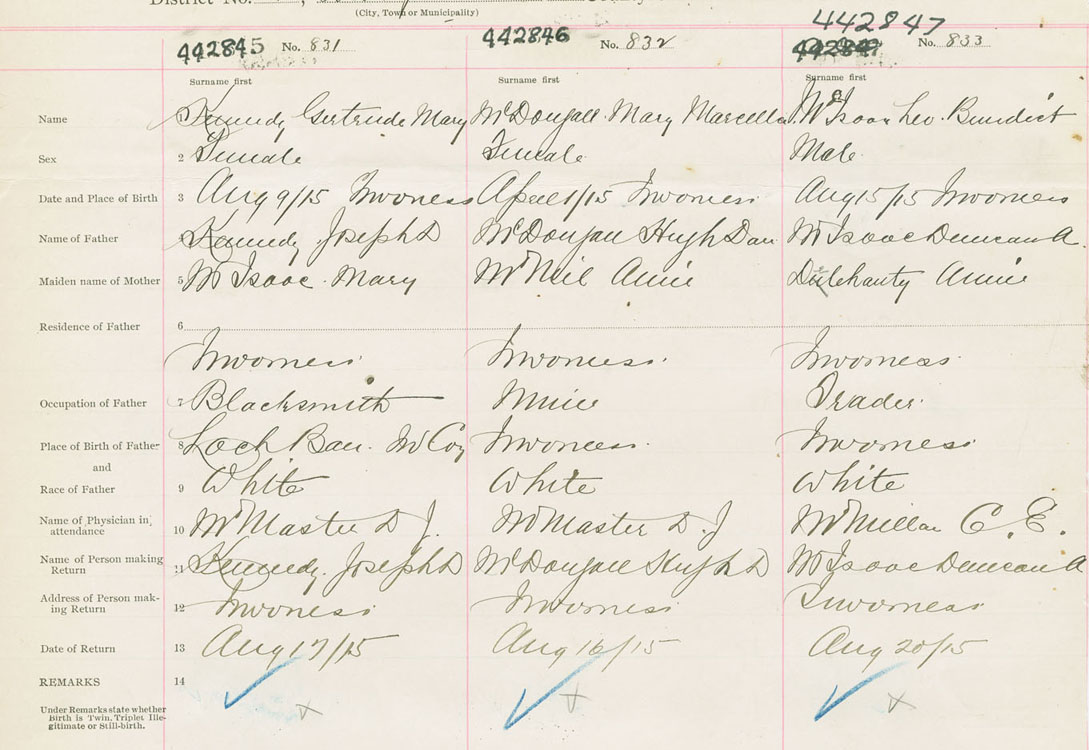 District No.
(City, Town or Municipality)
442845 No. 831 442846 No. 832 442847 No. 833
Surname first Surname first Surname first
Name Kennedy Gertrude Mary McDougall Mary Marcella McIsaac Leo Benedict
Sex 2 Female Female Male
Date and Place of Birth 3 Aug 9/15 Inverness April 1/15 Inverness Aug 15/15 Inverness
Name of Father Kennedy Joseph D McDougall Hugh Dan McIsaac Duncan A.
Maiden name of Mother 5 McIsaac Mary McNeil Annie Delehanty Annie
Residence of Father 6
Inverness Inverness Inverness
Occupation of Father 7 Blacksmith Miner Trader
Place of Birth of Father 8 Loch Ban Inverness Inverness
and
Race of Father 9 White White White
Name of Physician in attendance 10 McMaster D J. McMaster D. J McMillan C. E.
Name of Person making Return 11 Kennedy Joseph D McDougall Hugh D McIsaac Duncan A
Address of Person making Return 12 Inverness Inverness Inverness
Date of Return 13 Aug 17/15 Aug 16/15 Aug 20/15
REMARKS 14
Under Remarks state whether
Birth is Twin, Triplet Ille-
gitimate or Still-birth.